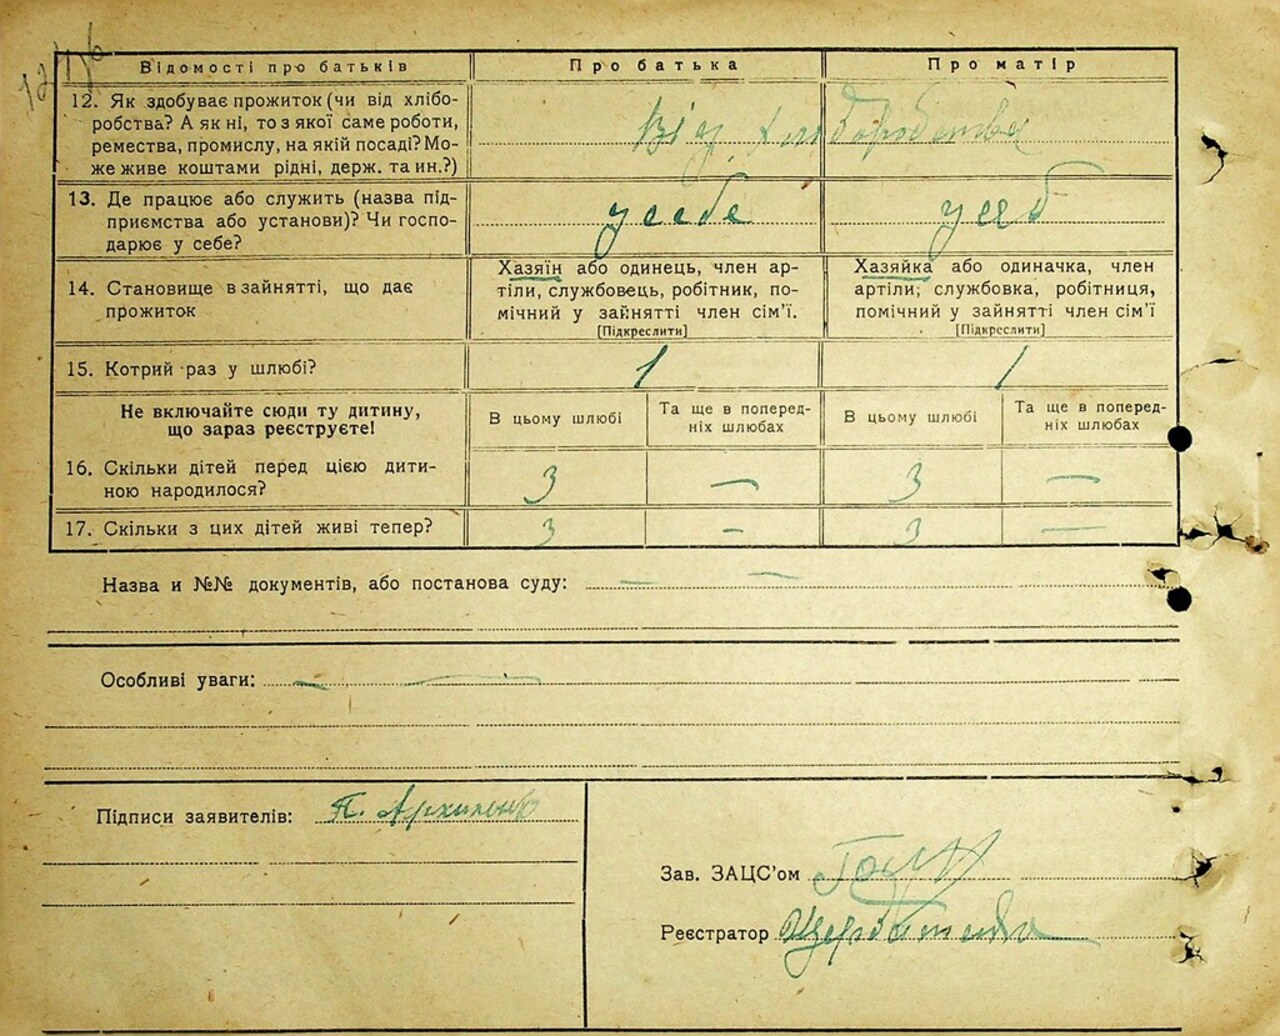 Відомості про батьків
Про батька
Про матір
12. Як здобуває прожиток (чи від хлібо-
робства? А як ні, то з якої саме роботи,
ремества, промислу, на якій посаді? Мо-
же живе коштами рідні, держ. та ин.?)
Від хліборобства
13. Де працює або служить (назва під-
приємства або установи)? Чи госпо-
дарює у себе?
у себе
у себ
14. Становище в зайнятті, що дає
прожиток
Хазяїн або одинець, член ар-
тіли, службовець, робітник, по-
мічний у зайнятті член сім'ї.
[Підкреслити]
Хазяйка або одиначка, член
артіли, службовка, робітниця,
помічний у зайнятті член сім'ї
[Підкреслити]
15. Котрий раз у шлюбі?
1
1
Не включайте сюди ту дитину,
що зараз реєструєте!
В цьому шлюбі
Та ще в поперед-
ніх шлюбах
В цьому шлюбі
Та ще в поперед-
ніх шлюбах
16. Скільки дітей перед цією дити-
ною народилося?
3 — 3 —
17. Скільки з цих дітей живі тепер?
3 – 3 —
Назва и №№ документів, або постанова суду: — —
Особливі уваги: — —
Підписи заявителів: П. Архипенко
Зав. ЗАЦС'ом
Реєстратор